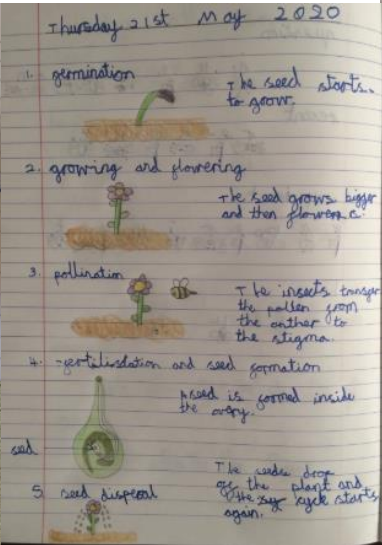 Thursday 21st May 2020
1. germination
The seed starts
to grow.
2. growing and flowering
The seed grows bigger
and then flowers
3. pollination
The insects transfer
the pollen from
the anther to
the stigma.
4. fertilisdation and seed formation
A seed is formed inside
the ovary.
sed
The seeds drop
off the plant and
the cycle starts
again.
5. seed dispersal